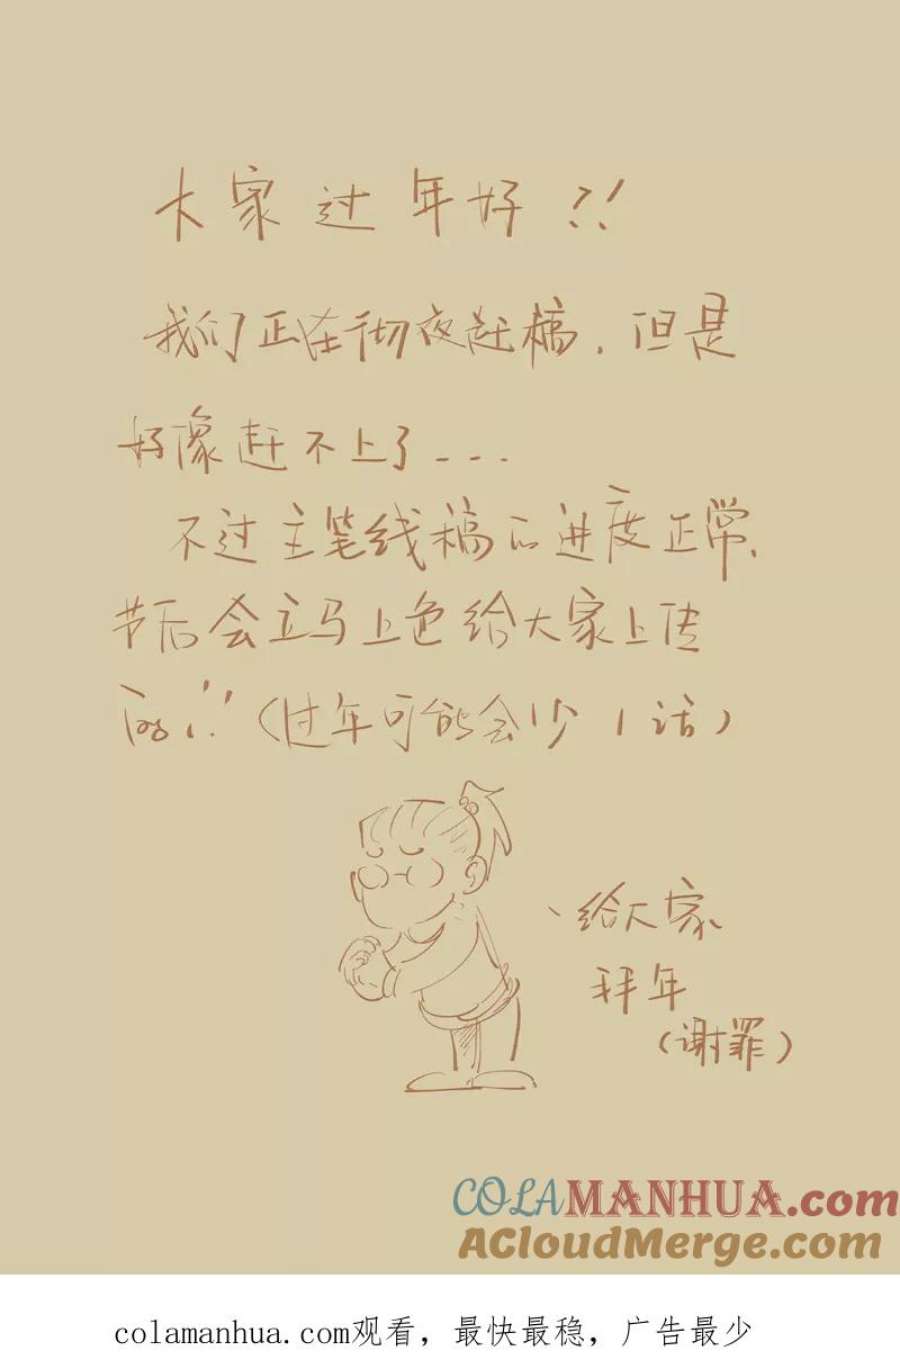 大家过年好!!
我们正在彻夜赶稿，但是
好像赶不上了...
不过主笔线稿的进度正常，
节后会立马上色给大家上传
的!!(过年可能会少1话)
给大家
拜年
(谢罪)
COLAMANHUA.com
ACloudMerge.com
colamanhua.com观看，最快最稳，广告最少